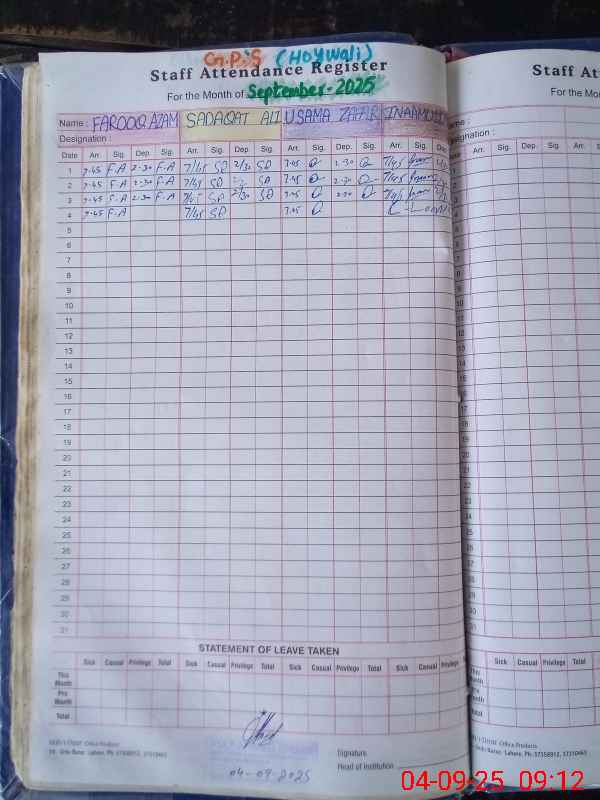 G.P.S (HOYWali)
Staff Attendance Register
For the Month of September-2025
Name : FAROOQ AZAM SADAQAT ALI USAMA ZAFAR
Designation :
Date Arr. Sig. Dep. Sig. Arr. Sig. Dep. Sig. Arr. Sig. Dep. Sig. Arr. Sig. Dep
1 7-45 F.A 2-30 F.A 7/45 SD 2/30 SD 7.45 2-30 7/45
2 7-45 F.A 2-30 F.A 7/45 SD SD 7.45 2-30 7/45
3 7-45 F.A 2-30 F.A 7/45 SD 2/30 SD 7.45 2-30 7/45
4 7-45 F.A 7/45 SD 7.45
5
6
7
8
9
10
11
12
13
14
15
16
17
18
19
20
21
22
23
24
25
26
27
28
29
30
31
STATEMENT OF LEAVE TAKEN
Sick Casual Privilege Total Sick Casual Privilege Total Sick Casual Privilege Total Sick Casual Privilege
This Month
Pre Month
Total
Signature
Head of Institution
04-09-2025
Staff At
For the Month
me :
signation :
Arr. Sig. Dep. Sig. Arr. Sig.
Sick Casual Privilege Total Sick
This
Month
Pre
Month
Total
04-09-25 09:12